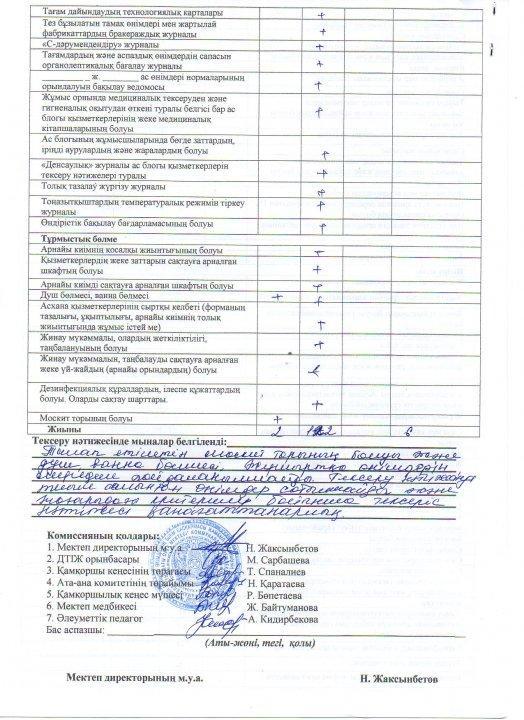 Тағам дайындаудың технологиялық карталары +
Тез бұзылатын тамак өнімдері мен жартылай
фабрикаттардың бракераждық журналы +
«С-дәрумендендіру» журналы +
Тағамдардың және аспаздық өнімдердің сапасын
органолептикалық бағалау журналы +
_________ ж. _________ ас өнімдері нормаларының
орындалуин бақылау ведомосы +
Жұмыс орнында медициналық тексеруден және
гигиеналық оқытудан өткені туралы белгісі бар ас
блогы қызметкерлерінің жеке медициналық
кітапшаларының болуы +
Ас блогының жұмысшыларында бөгде заттардың,
іріңді аурулардың және жаралардың болуы +
«Денсаулық» журналы ас блогы қызметкерлерін
тексеру нәтижелері туралы +
Толық тазалау жүргізу журналы +
Тоңазытқыштардың температуралық режимін тіркеу
журналы +
Өндірістік бақылау бағдарламасының болуы +
Тұрмыстық бөлме
Арнайы киімнің косалқы жиынтығының болуы +
Қызметкерлердің жеке заттарын сақтауға арналған
шкафтың болуы +
Арнайы киімді сақтауға арналған шкафтың болуы +
Душ бөлмесі, ванна бөлмесі +
Асхана қызметкерлерінің сыртқы келбеті (форманың
тазалығы, ұқыптылығы, арнайы киімнің толық
жиынтығында жұмыс істей ме) +
Жинау мүкәммалы, олардың жеткіліктілігі,
таңбалануының болуы +
Жинау мүкәммалын, таңбалауды сақтауға арналған
жеке үй-жайдың (арнайы орындардың) болуы +
Дезинфекциялық құралдардың, ілеспе құжаттардың
болуы. Оларды сақтау шарттары. +
Москит торының болуы +
Жиыны 2 6
Тексеру нәтижесінде мыналар белгіленді:
Талап етілетін москит торының болуы және
душ ванна бөлмесі.
тыйым салынған өнімдер сатылмайды және
нәтижесі қанағаттанарлық
Комиссияның қолдары:
1. Мектеп директорының м.у.а. Н. Жаксынбетов
2. ДТІЖ орынбасары М. Сарбашева
3. Қамқоршы кеңесінің төрағасы Т. Спаналиев
4. Ата-ана комитетінің төрайымы Н. Қаратаева
5. Қамқоршылық кеңес мүшесі Р. Бөпетаева
6. Мектеп медбикесі Ж. Байтуманова
7. Әлеуметтік педагог А. Кидирбекова
Бас аспазшы: _________
(Аты-жөні, тегі, қолы)
Мектеп директорының м.у.а. Н. Жаксынбетов